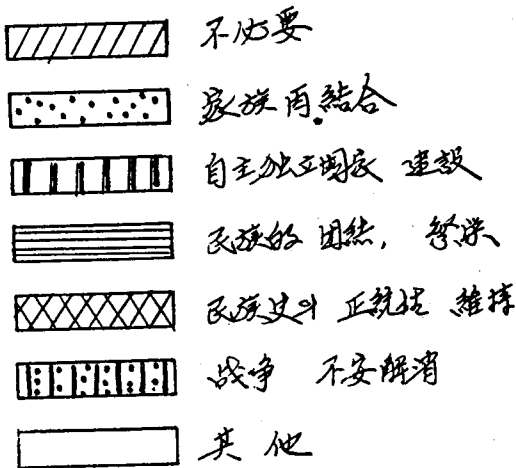 不必要
家族再結合
自主独立国家 建設
民族的 团结, 繁栄
民族史의 正統性 維持
战争 不安解消
其他